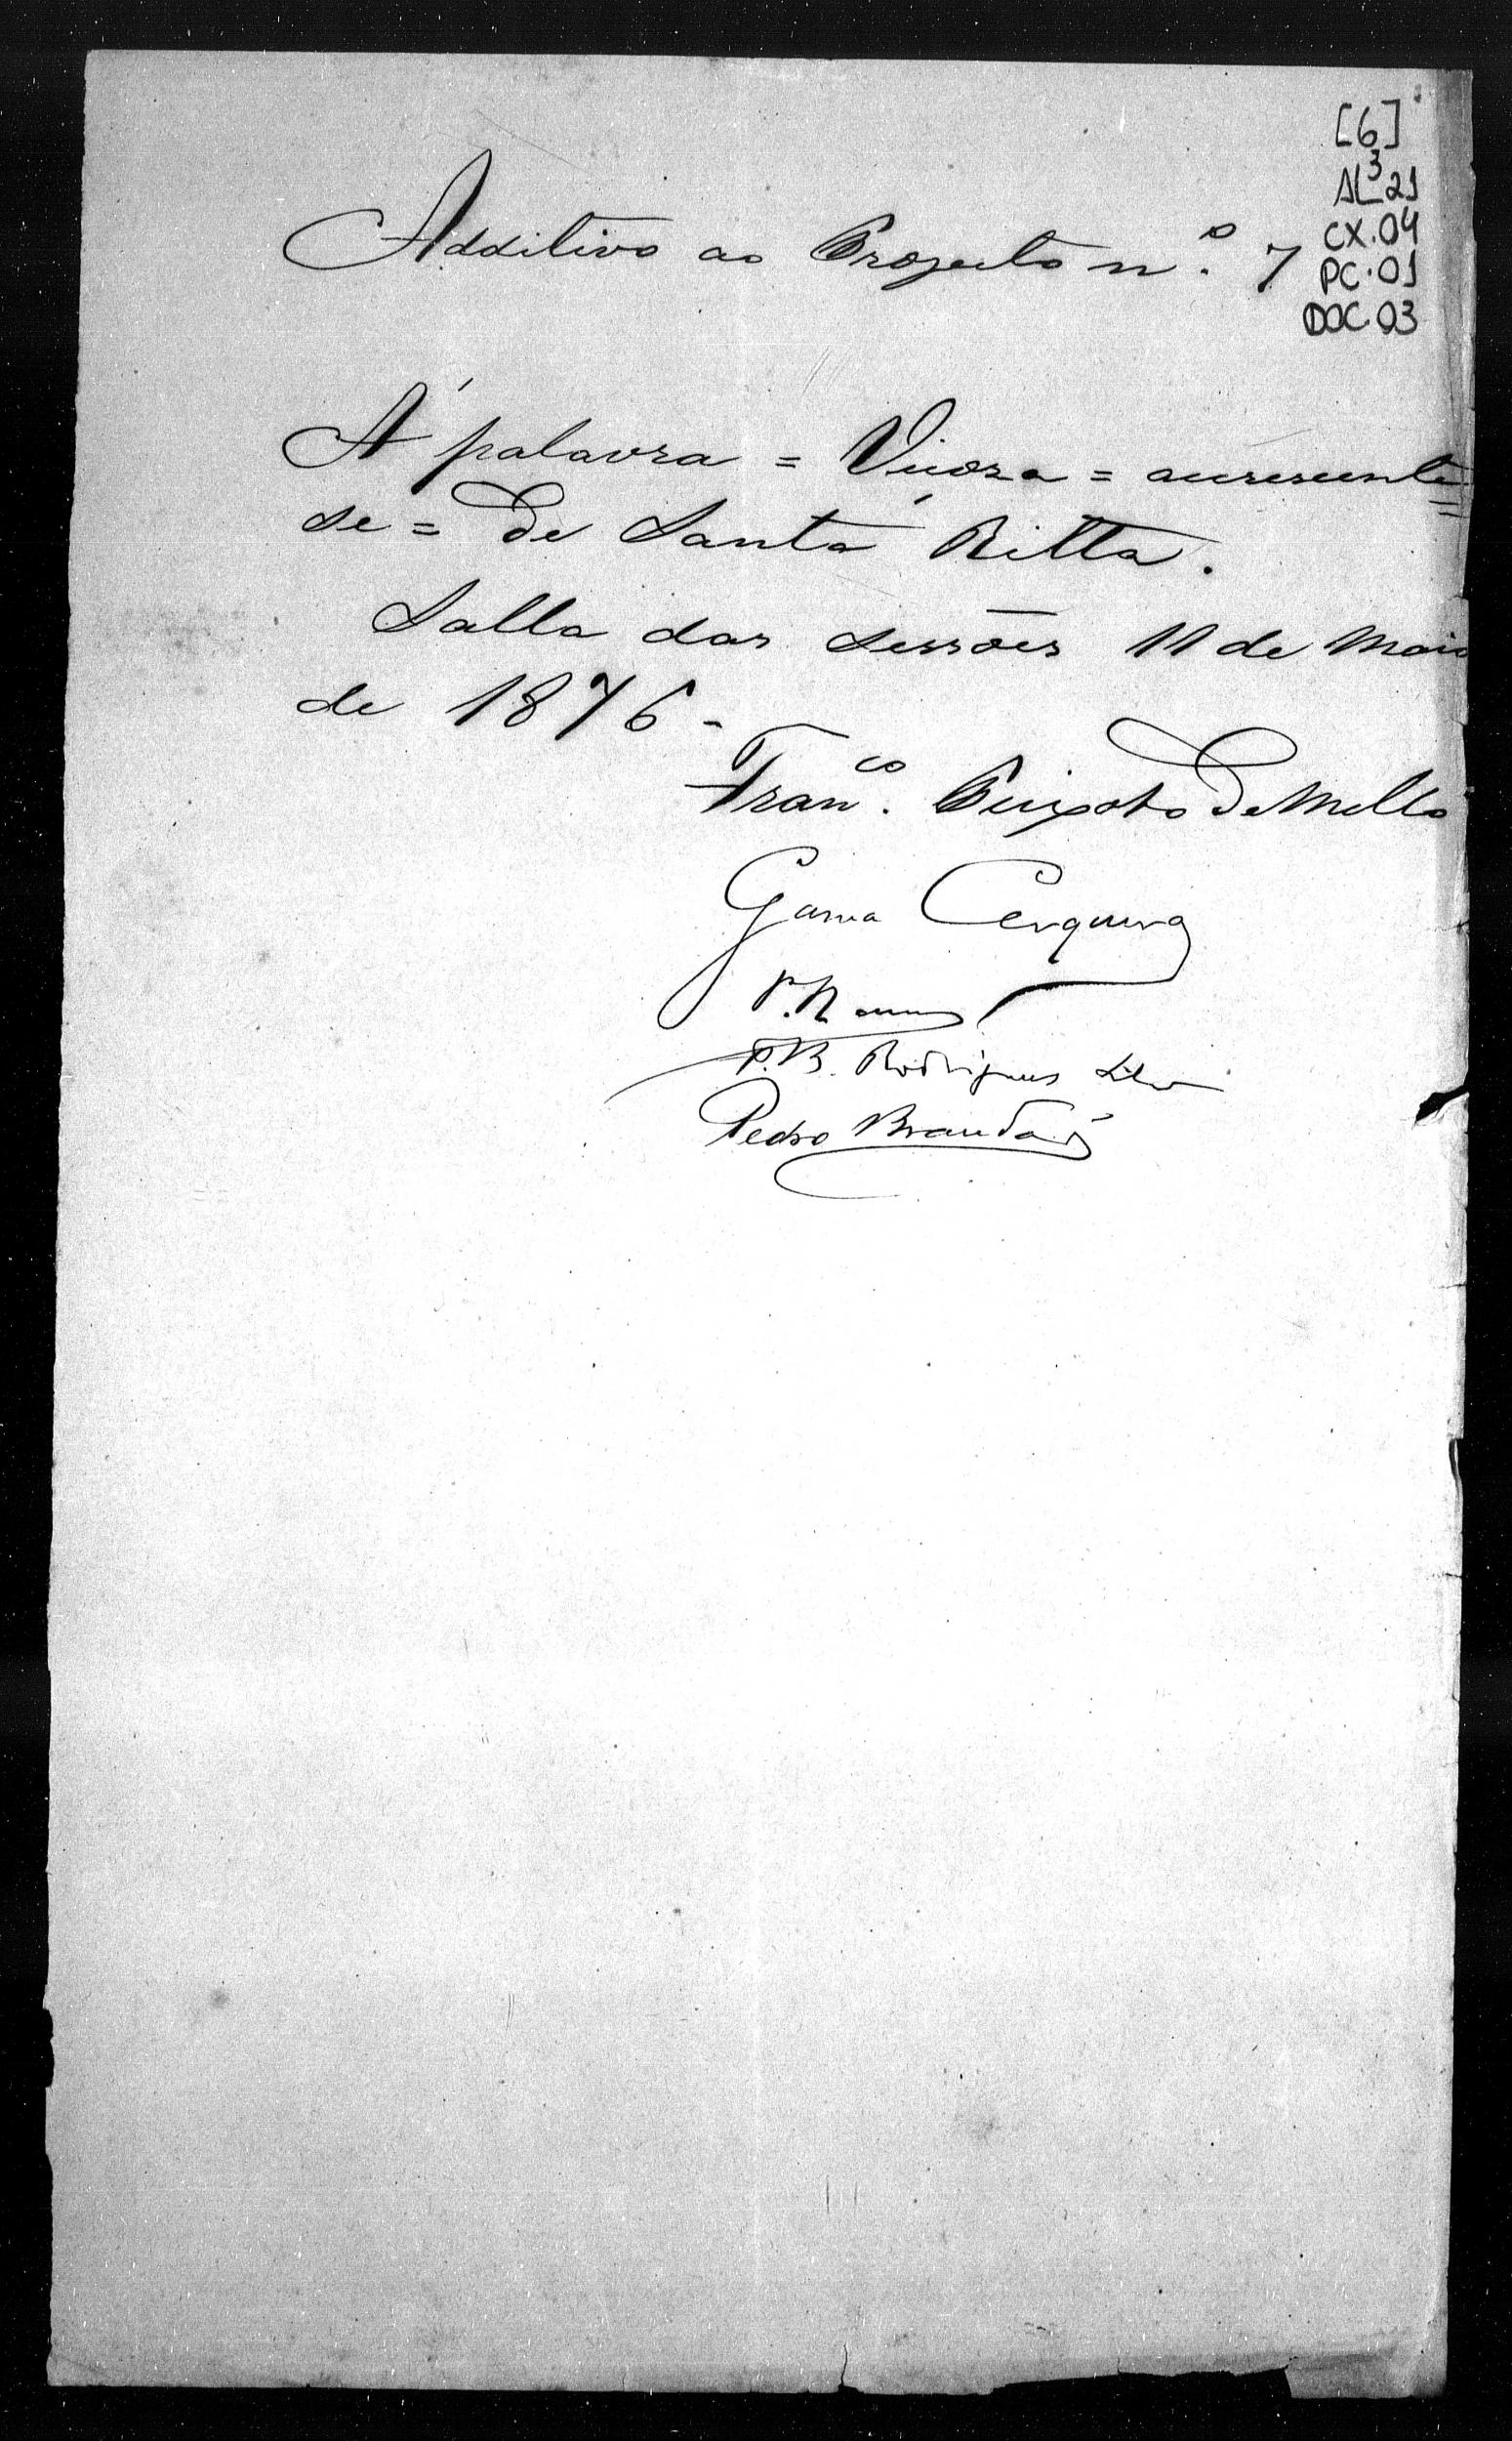 [6]
AL³21
CX.04
PC.01
DOC.03
Additivo ao Projecto n.º 7
Á palavra = Viçoza = accrescente=
se = de Santa Ritta.
Salla das sessões 11 de Maio
de 1876 -
Fran.co Peixoto de Mello
Gama Cerqueira
P. B. Rodrigues Silva
Pedro Brandão